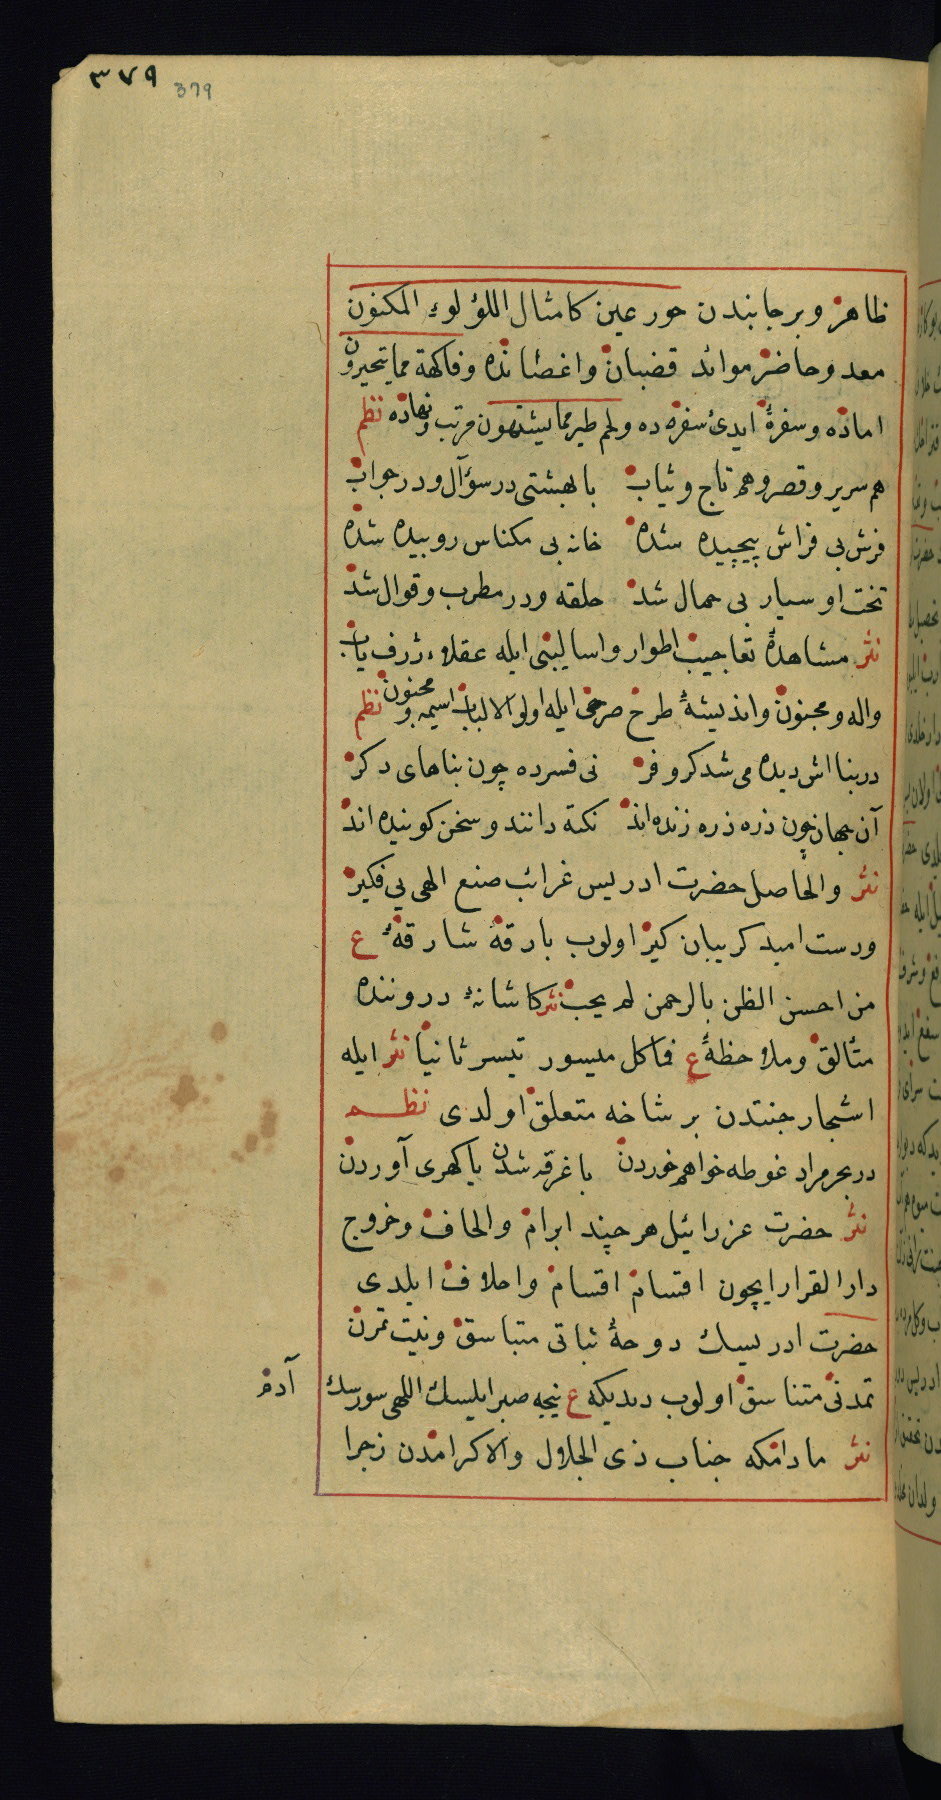 ٣٧٩ 379
ظاهر وبر جانبندن حور عين كامثال اللؤلوء المكنون
معد وحاضر موائد قضبان واغصانده وفاكهة مما يتخيرون
اماده وسفرهٔ ايدئ سفره ده ولحم طير مما يشتهون مرتب ونهاده نظم
هم سرير وقصر وهم تاج وثياب با بهشتى در سؤآل ودر جواب
فرش بى فراش پيچيده شده خانه بى مكناس روبيده شده
تخت او سيار بى حمال شد حلقه ودر مطرب وقوال شد
نثر مشاهدهٔ تعاجيب اطوار واساليبنى ايله عقلاء ژرف ياب
واله ومجنون وانديشهٔ طرخ صرحى ايله اولو الالباب اسيمه ومجنون نظم
در بنا اش ديده مى شد كر وفر نى فسرده چون بناهاى دكر
آن جهان چون ذره ذره زنده اند نكته دانند وسخن كوينده اند
نثر والحاصل حضرت ادريس غرائب صنع الهى يى فكير
ودست اميد كريبان كير اولوب بارقهٔ شارقهٔ ع
من احسن الظن بالرحمن لم يخب نثر كاشانهٔ دروننده
متألق وملاحظهٔ ع فاكل ميسور تيسر ثانيا نثر ايله
اشجار جنتدن بر شاخه متعلق اولدى نظم
در بحر مراد غوطه خواهم خوردن با غرقه شدن يا كهرى آوردن
نثر حضرت عزرائيل هر چند ابرام والحاف وخروج
دار القرار ايچون اقتسام اقسام واحلاف ايلدى
حضرت ادريسك دوحهٔ ثباتى متباسق ونيت تمرن
تمدنى متناسق اولوب ديديكه ع نيجه صبر ايليسك اللهى سورسك
آدم
نثر مادامكه جناب ذى الجلال والاكرامدن زجرا